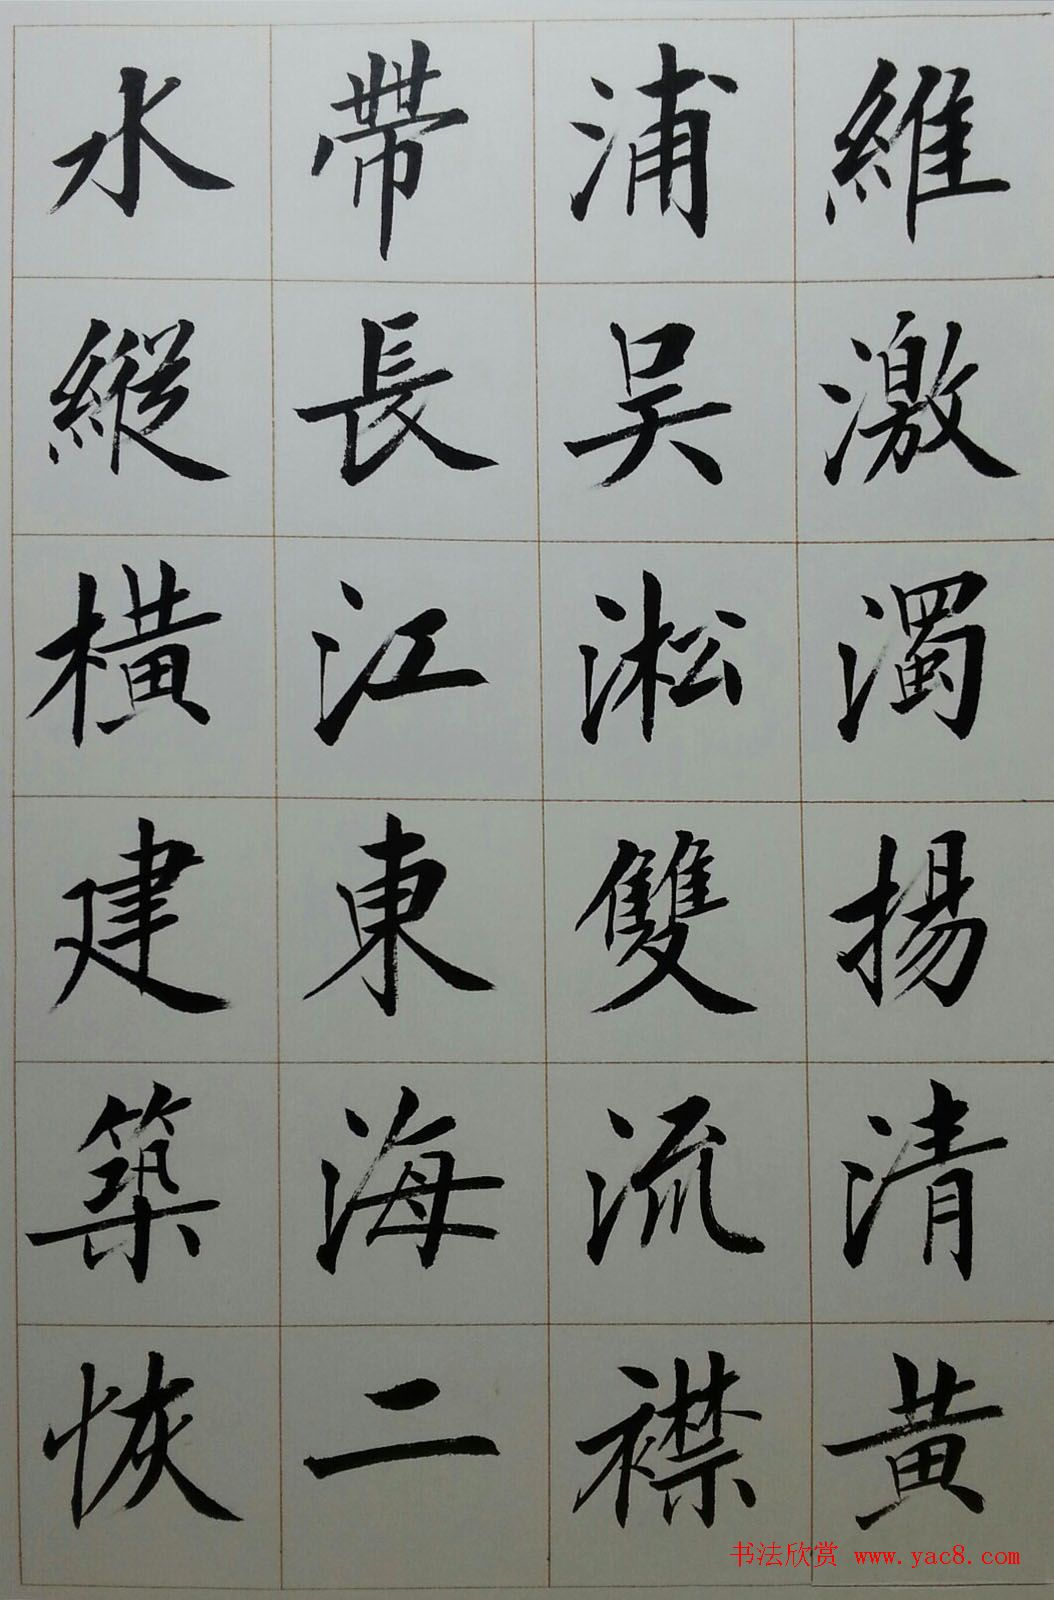 維激濁揚清黄
浦吴淞雙流襟
帶長江東海二
水縱橫建築恢
书法欣赏 www.yac8.com